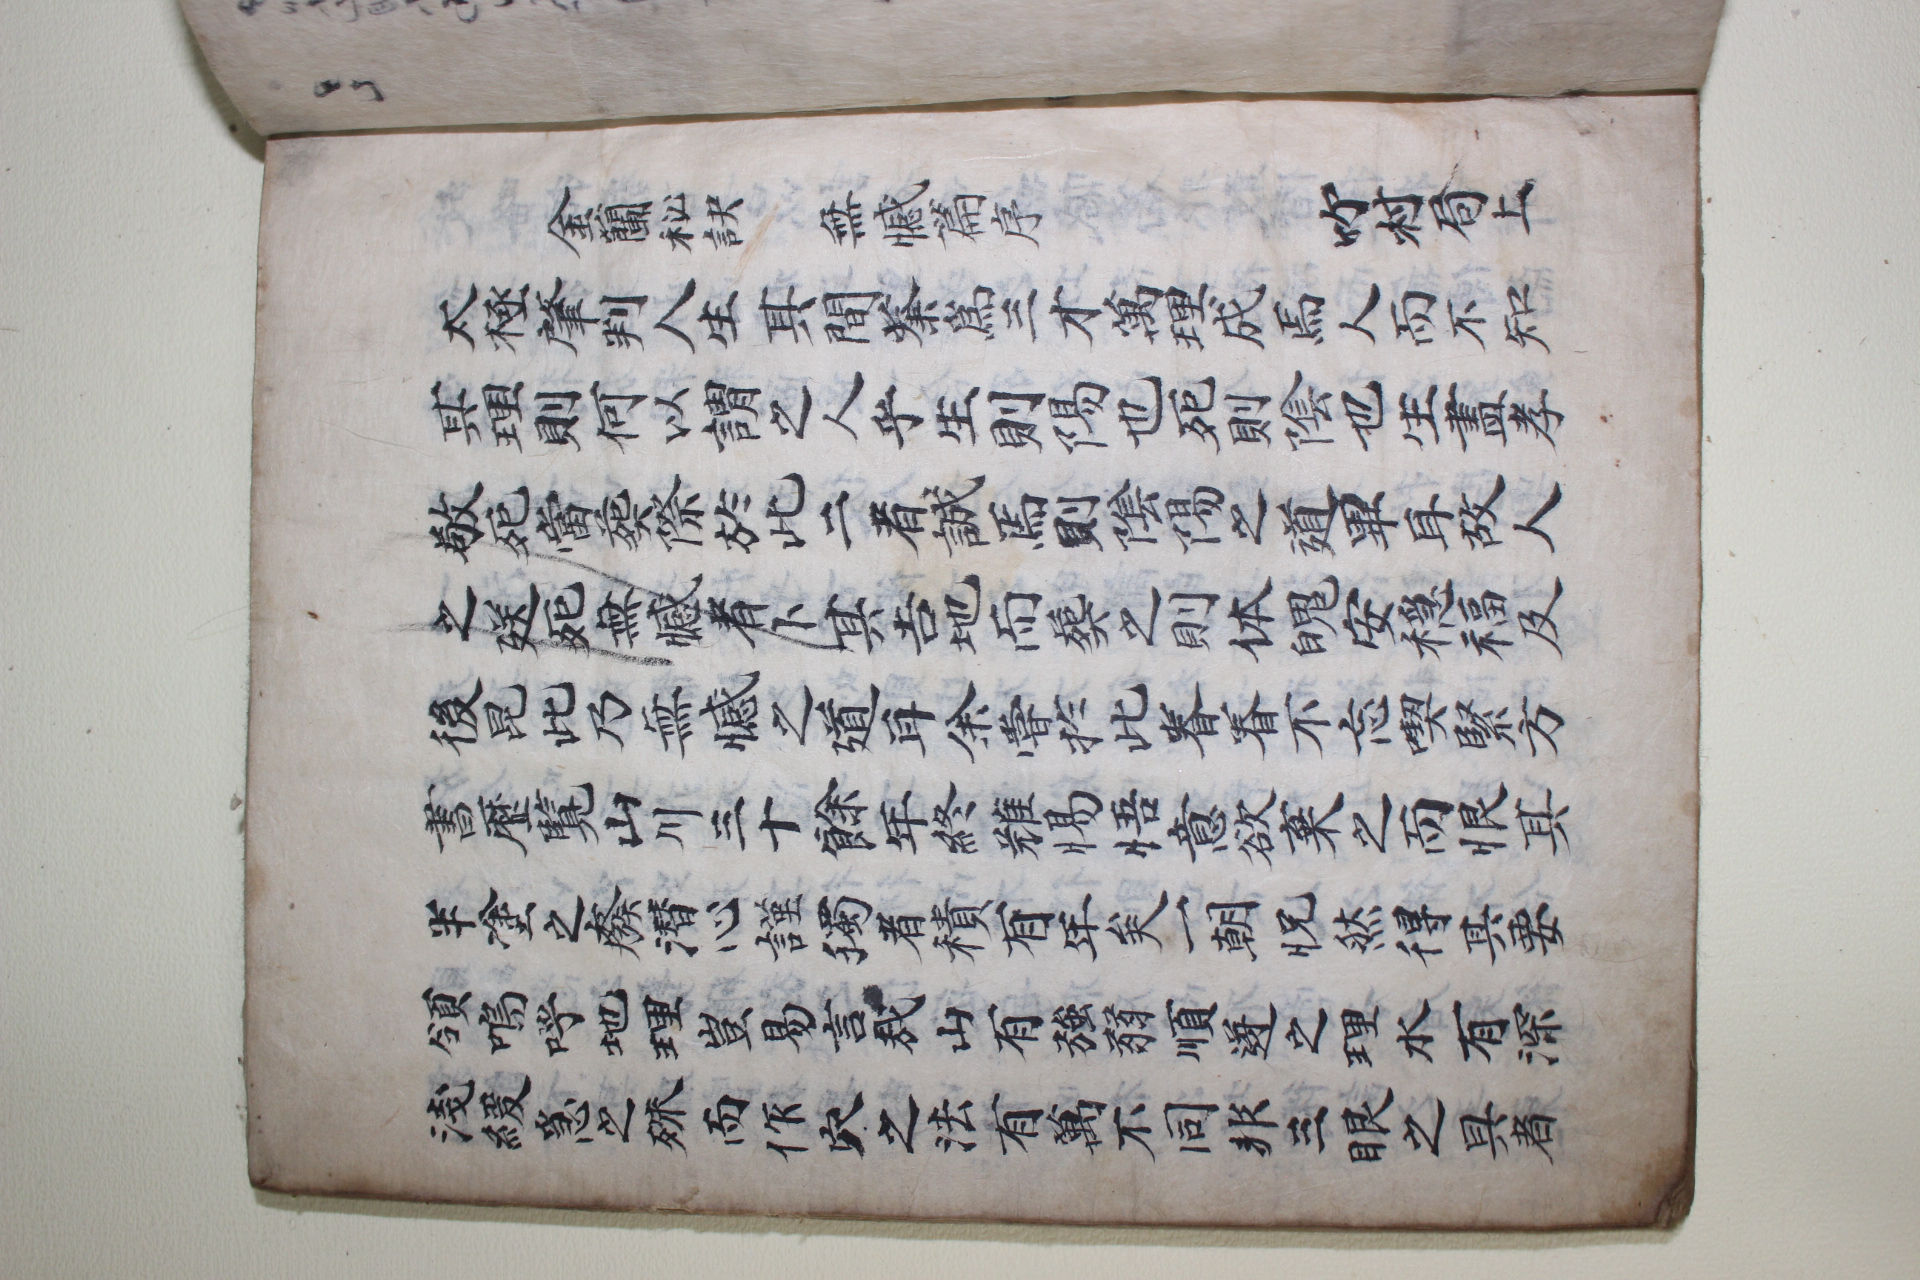 金蘭秘訣 無憾篇序 吹村局上
太極肇判人生其間叅爲三才萬理成焉人而不知
其理則何以謂之人乎生則陽也死則陰也生盡孝
敬死當葬際於此二者誠焉則陰陽之道畢耳故人
之送死無憾者卜其吉地而葬之則体魄安穩福及
後昆此乃無憾之道耳余嘗於此眷眷不忘喫緊方
書歷覽山川三十餘年終難惕悟意欲棄之而恨其
半塗之癈潛心謹獨者積有年矣一朝怳然得其要
領嗚呼地理豈易言哉山有強弱順逆之理水有深
淺緩急之殊而作穴之法有萬不同非三眼之具者